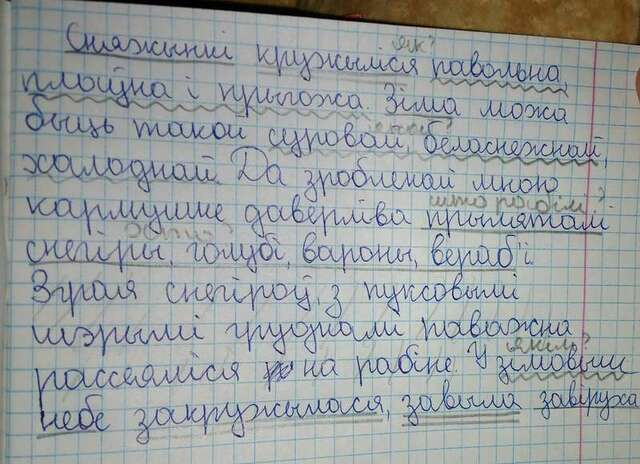 як?
Сняжынкі кружыліся павольна,
плаўна і прыгожа. Зіма можа
быць такой суровай, беласнежнай,
халоднай. Да зробленай мною
што робім?
кармушке даверліва прыляталі
снегіры, голубі, вароны, вераб'і.
Зграя снегіроў з пуксовымі
шэрымі грудкамі паважна
якім?
рассеяліся на рабіне. У зімовым
небе закружылася, завыла завіруха